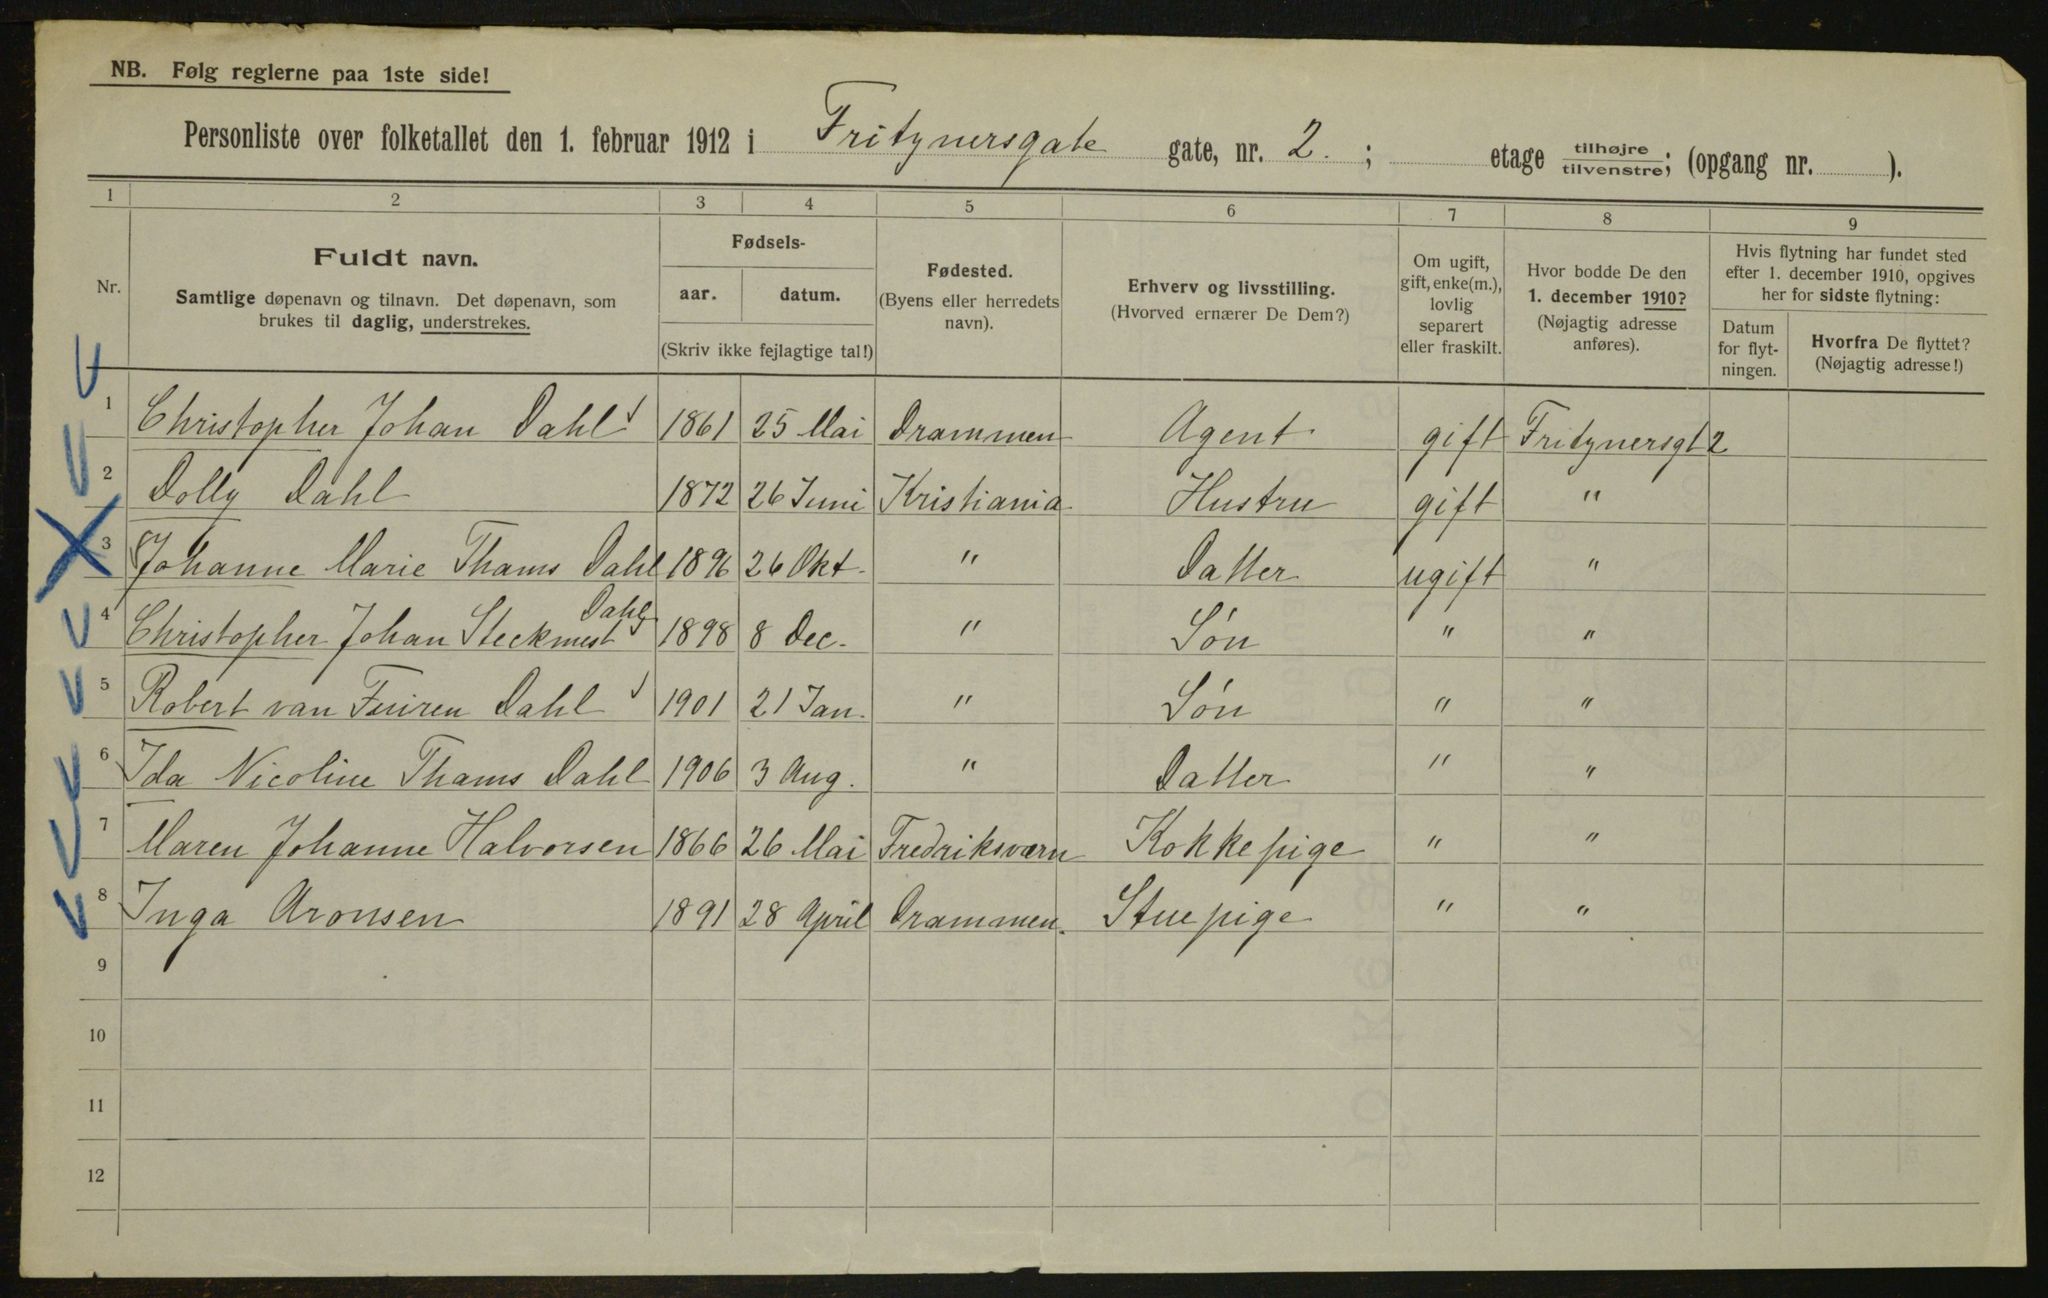 NB. Følg reglerne paa 1ste side!
Personliste over folketallet den 1. februar 1912 i Fritznersgate gate, nr. 2. ; etage tilhøjre/tilvenstre; (opgang nr. ).
1 2 3 4 5 6 7 8 9
Nr.
Fuldt navn.
Samtlige døpenavn og tilnavn. Det døpenavn, som
brukes til daglig, understrekes.
Fødsels-
aar. datum.
(Skriv ikke fejlagtige tal!)
Fødested.
(Byens eller herredets
navn).
Erhverv og livsstilling.
(Hvorved ernærer De Dem?)
Om ugift,
gift, enke(m.),
lovlig
separert
eller fraskilt.
Hvor bodde De den
1. december 1910?
(Nøjagtig adresse
anføres).
Hvis flytning har fundet sted
efter 1. december 1910, opgives
her for sidste flytning:
Datum
for flyt-
ningen.
Hvorfra De flyttet?
(Nøjagtig adresse!)
1 Christopher Johan Dahl 1861 25 Mai Drammen Agent gift Fritznersgt 2
2 Dolly Dahl 1872 26 Juni Kristiania Hustru gift "
3 Johanne Marie Thams Dahl 1896 26 Okt. " Datter ugift "
4 Christopher Johan Steckmest Dahl 1898 8 Dec. " Søn " "
5 Robert van Dahl 1901 21 Jan. " Søn " "
6 Ida Nicoline Thams Dahl 1906 3 Aug. " Datter " "
7 Maren Johanne Halvorsen 1866 26 Mai Fredriksværn Kokkepige " "
8 Inga Aronsen 1891 28 April Drammen. Stuepige " "
9
10
11
12